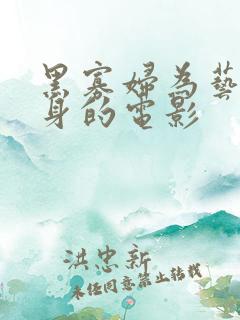 黑寡婦為藝
身的電影
洪忠新
未经同意禁止转载